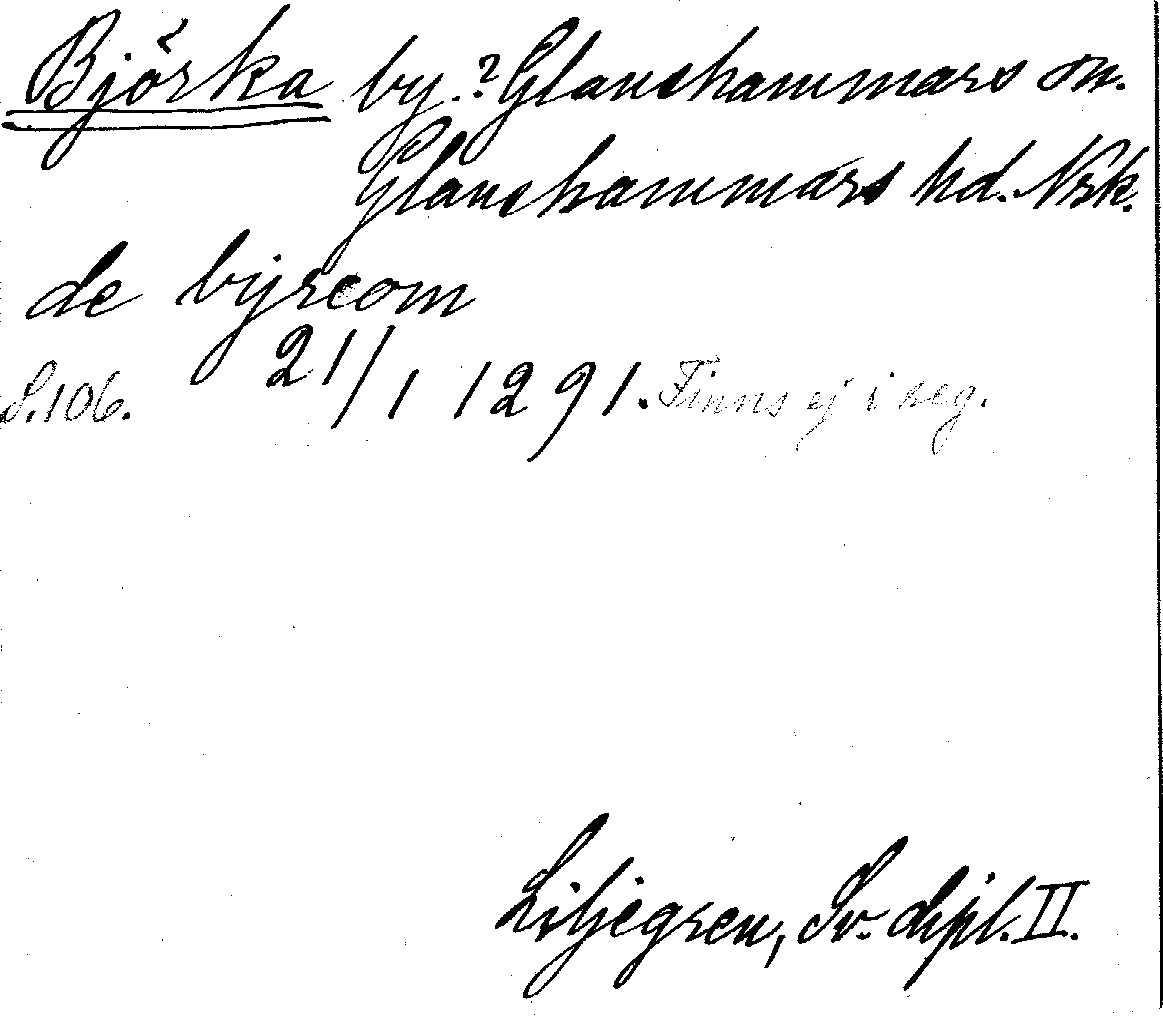 Björka by.? Glanshammars sn.
Glanshammars hd. Nrk.
de byrcom
S. 106. 21/1 1291. Finns ej i reg.
Liljegren, Sv. dipl. II.